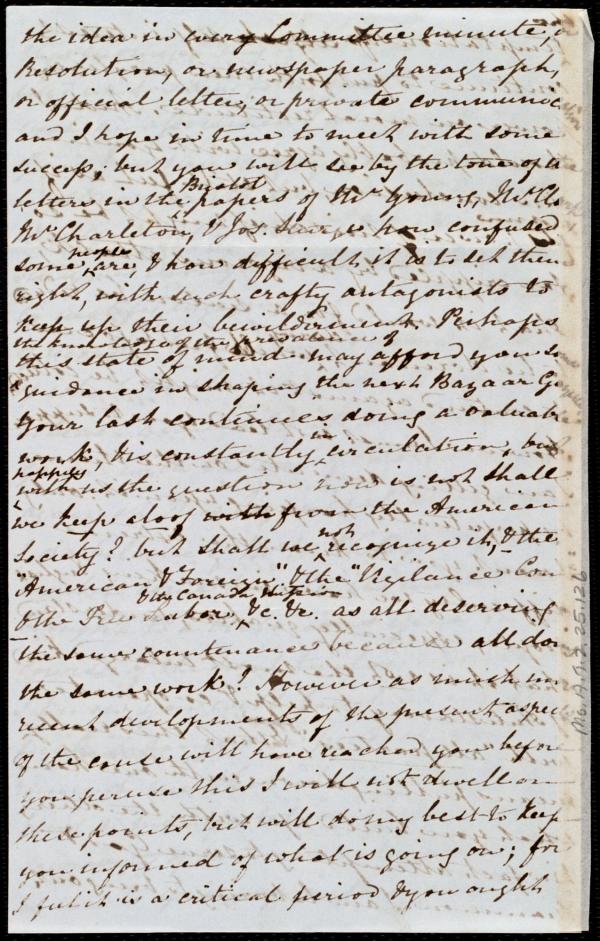 the idea in every Committee minute,
Resolution, or newspaper paragraph,
or official letter, or private communic
and I hope in time to meet with some
success; but you will see by the tone of
Bristol
letters in the papers of Mr Young, Mr
Mr Charleton, & Jos. how confused
people
some are, & how difficult it is to set them
right, with such crafty antagonists to
keep up their bewilderment. Perhaps
the knowledge of the prevalence of
this state of mind may afford you
guidance in shaping the next Bazaar
Your last continues doing a valuable
in
work, & is constantly circulation, but
happily
with us the question now is not shall
we keep aloof with from the American
not
Society? but shall we recognize it, & the
"American & Foreign" & the "Vigilance Com
& the Canada
& the Free Labor, &c. &c. as all deserving
the same countenance because all do
the same work? However as much
recent developments of the present aspec
of the cause will have reached you before
you peruse this I will not dwell on
these points, but will do my best to keep
you informed of what is going on; for
I feel it is a critical period & you ought
Ms.A.1.2.25.126